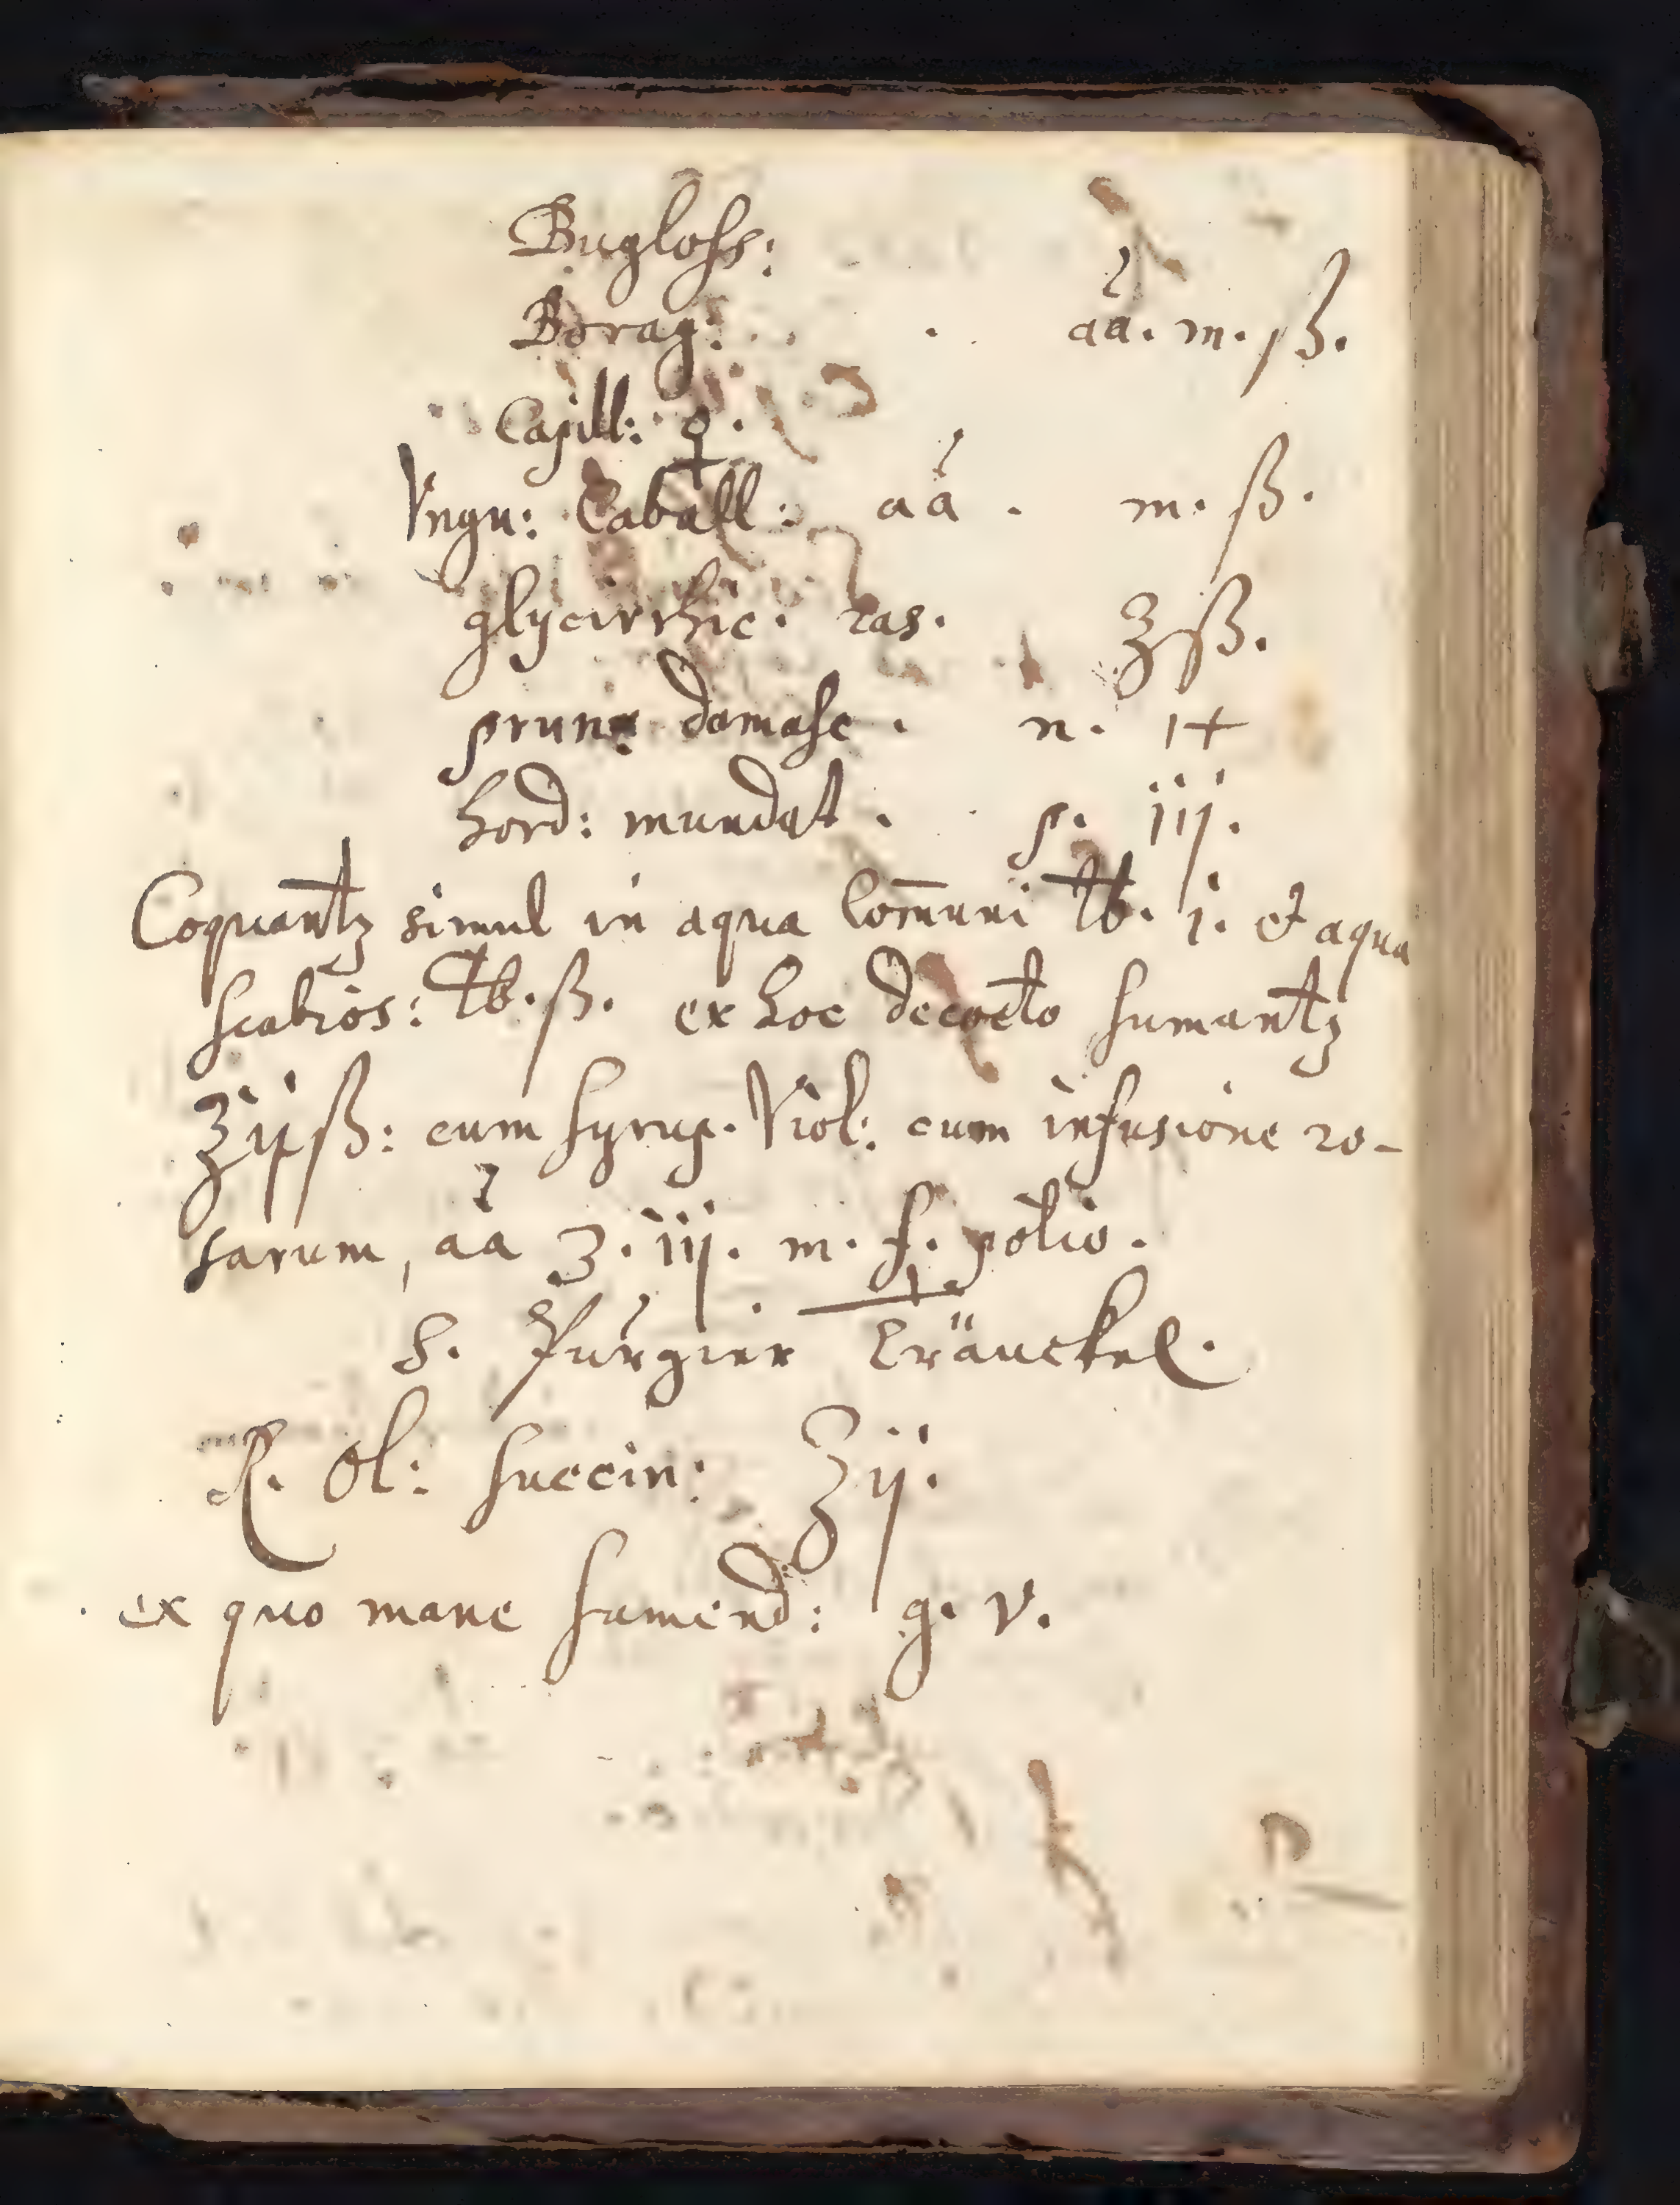 Bugloss:
Borag: . . aá. m. ß.
Capill: ♀.
Vngu: Caball: aá. m. ß.
glycirrhic. ras. ℥ß.
prunę damasc. n. 1+
hord: mundat. p. iij.
Coquantꝫ simul in aqua com̄uni ℔. j. et aqua
scabios: ℔. ß. ex hoc decocto sumantꝫ
℥ijß: cum syrup. Viol: cum infusione ro-
sarum, aá ℥. iij. m. f. potio.
S. Purgier Tränckel.
℞. Ol: succin: ℥ij.
ex quo mane sumend: g. v.